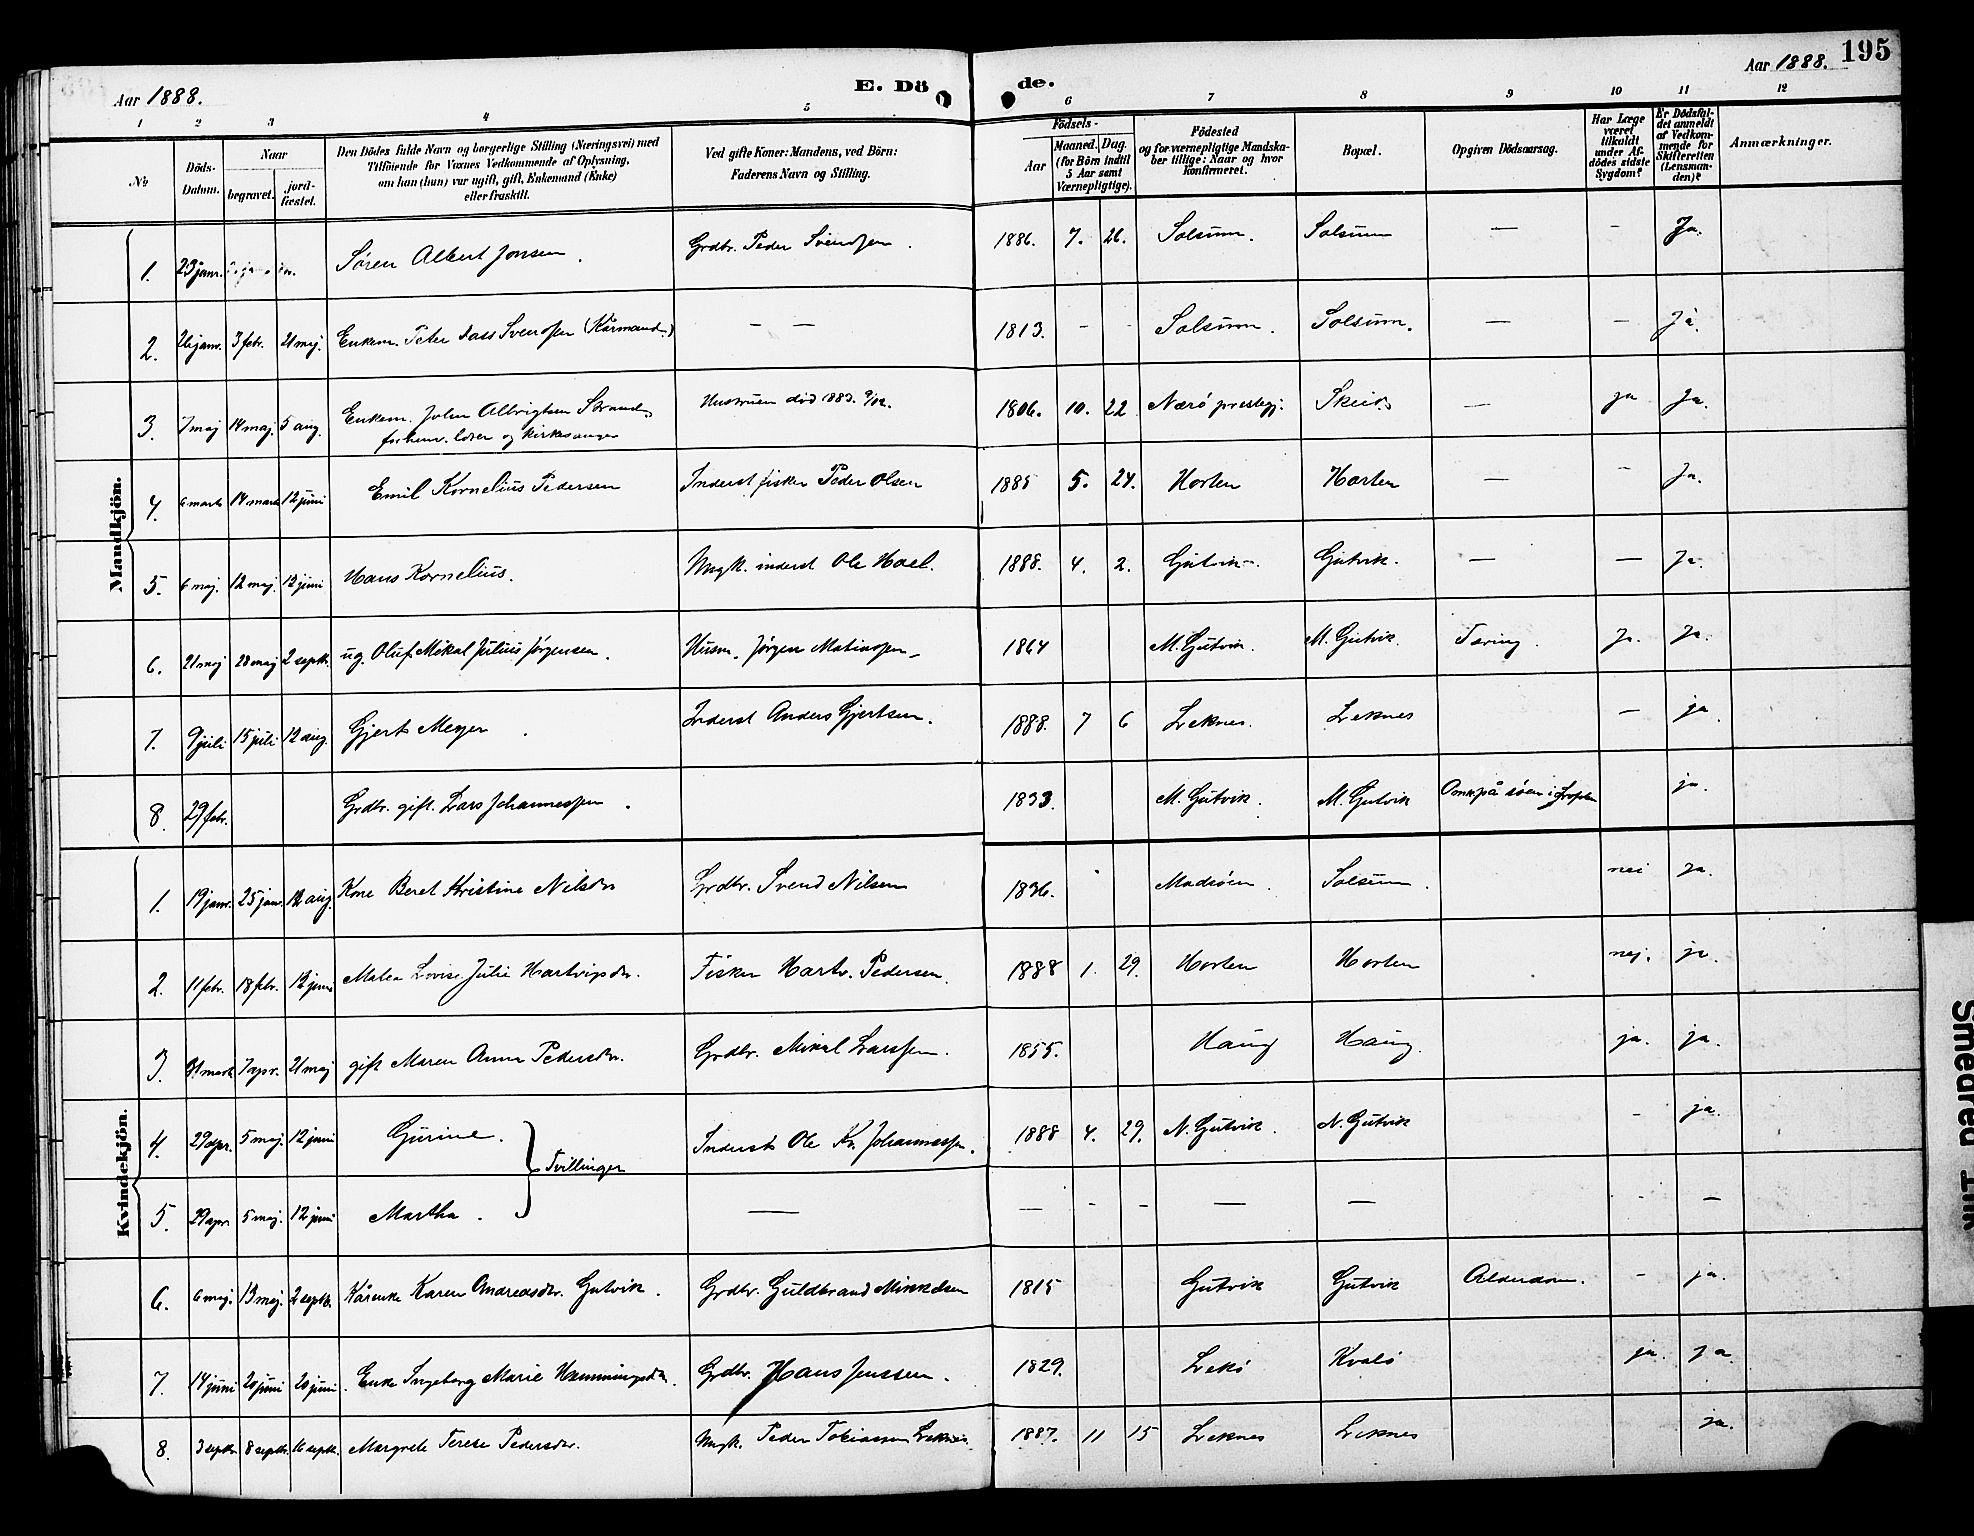 195
Aar 1888. E. Dö de. Aar 1888.
1 2 3 4 5 6 7 8 9 10 11 12
No
Döds-Datum.
Naar
begravet.
jord-fæstet.
Den Dödes fulde Navn og borgerlige Stilling (Næringsvei) med
Tilföiende for Voxnes Vedkommende af Oplysning,
om han (hun) var ugift, gift, Enkemand (Enke)
eller fraskilt.
Ved gifte Koner: Mandens, ved Börn:
Faderens Navn og Stilling.
Födsels-
Aar
Maaned. Dag.
(for Börn indtil
5 Aar samt
Værnepligtige).
Födested
og for værnepligtige Mandska-
ber tillige: Naar og hvor
konfirmeret.
Bopæl.
Opgiven Dödsaarsag.
Har Læge
været
tilkaldt
under Af-
dödes sidste
Sygdom?
Er Dödsfal-
det anmeldt
af Vedkom-
mende for
Skifteretten
(Lensman-
den)?
Anmærkninger.
Mandkjön.
1. 23 janr. Søren Albert Jonsen. Grdbr. Peder Svendsen. 1886. 7. 26. Solsum. Solsum — - Ja.
2. 26 janr. 3 febr. 21 maj. Enkem. Peter Dass Svendsen (Kårmand.) — — 1813. - - Solsum. Solsum. — — Ja.
3. 7 maj 14 maj. 5 aug. Enkem. John Albrigtsen Strand, Hustruen död 1883. 1806. 10. 22 Nærö prestegj. Skeid. — ja Ja.
forhenv. lærer og kirkesanger
4. 6 marts 14 marts 12 juni Emil Kornelius Pedersen Inderst fisker Peder Olsen 1885 5. 24. Horten Horten — - Ja.
5. 6 maj. 12 maj. 12 juni Hans Kornelius. Ungk. inderst Ole Hoel. 1888. 4. 2. Gutvik Gutvik. — — Ja.
6. 21 maj 28 maj 2 septb. ug. Oluf Mikal Julius Jørgensen. Husm. Jørgen 1864 M. Gutvik. M. Gutvik. Tæring. Ja. Ja.
7. 9 juli 15 juli 12 aug. Gjert Meyer. Inderst Anders Gjertsen. 1888. 7 6 Leknes. Leknes — ja
8. 29 febr. Grdbr. gift. Lars Johannessen. 1833. M. Gutvik. M. Gutvik Omk. på söen i ja.
Kvindekjön.
1. 19 janr. 25 janr. 12 aug. Kone Beret Kristine Nilsdtr Grdbr. Svend Nilsen 1836. Madsöen. Solsum. nei Ja.
2. 11 febr. 18 febr. 12 juni Malea Lovise Julie Hartvigsdr. Fisker Hartv. Pedersen. 1888 1. 29. Horten Horten nej. ja.
3. 31 marts 7 apr. 21 maj gift Maren Anna Pedersdtr. Grdbr. Mikal Larssen. 1855. Haug Haug. ja. ja.
4. 29 apr. 5 maj. 12 juni Gurine. Inderst Ole Kr. Johannessen. 1888 4. 29. N. Gutvik. N. Gutvik - ja.
Tvillinger
5. 29 apr. 5 maj. 12 juni Martha. — — - - — — - —
6. 6 maj. 13 maj. 2 septb. Kårenke Karen Andreasdtr. Gutvik. Grdbr. Guldbrand Mikkelsen 1815 Gutvik Gutvik Alderdom. - ja.
7. 14 juni 20 juni 20 juni. Enke Ingeborg Marie Hemmingsdtr. Grdbr. Hans Jenssen. 1829. Lekö Kvalö ja. ja
8. 3 septb. 8 septb. 16 septb. Margrete Terese Pedersdtr. Ungk. Peder Tobiassen Leknes 1887. 11 15 Leknes Leknes ja.
Smeared Ink